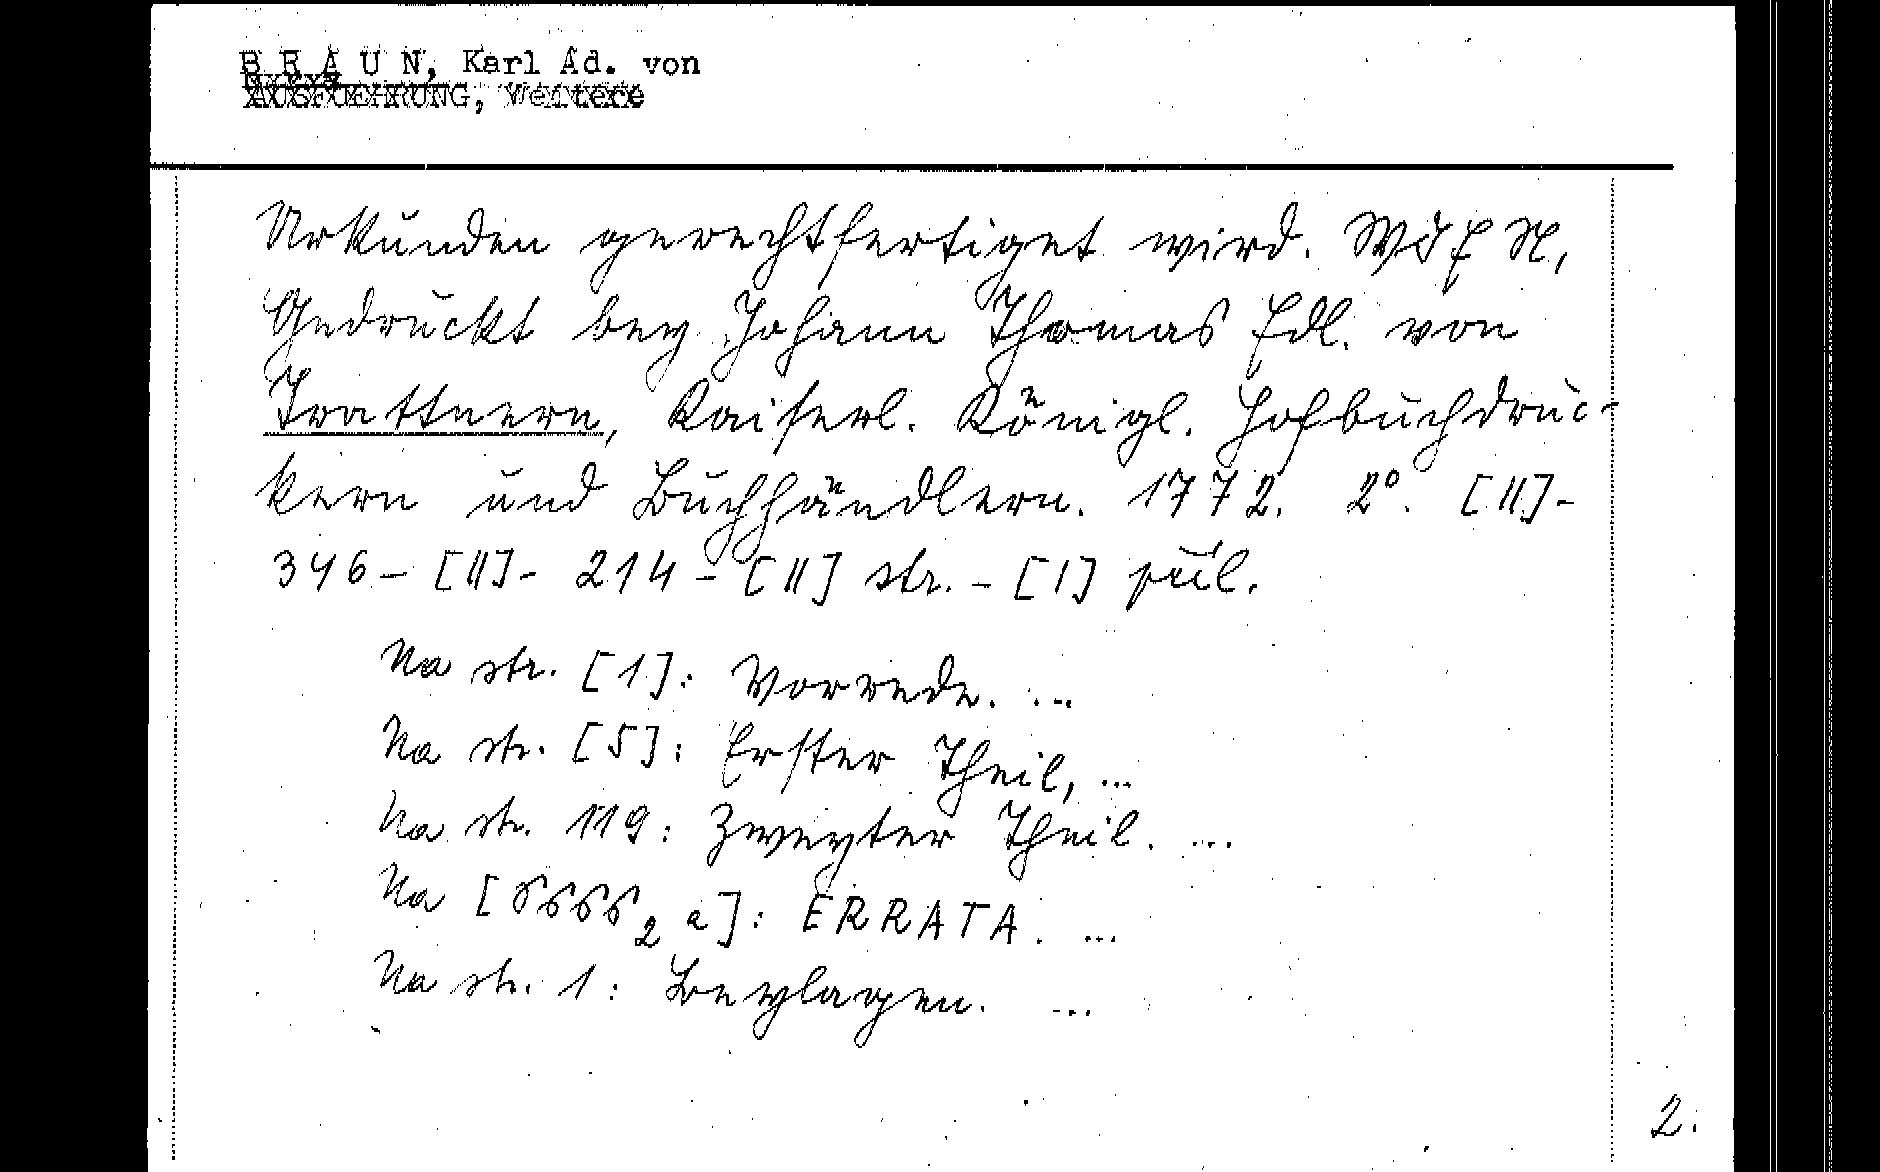 B R A U N, Karl Ad. von
AUSFUEHRUNG, Weitere
Urkunden gerechtfertiget wird. WJEN,
Gedruckt bey Johann Thomas Edl. von
Trattnern, Kaiserl. Königl. Hofbuchdruc-
kern und Buchhändlern. 1772. 2°. [II]-
346-[II]-214-[II] str.-[1] příl.
Na str. [1]: Vorrede. ...
Na str. [5]: Erster Theil, ...
Na str. 119: Zweyter Theil. ...
Na [Ssss₂ a]: ERRATA. ...
Na str. 1: Beylagen. ...
2.